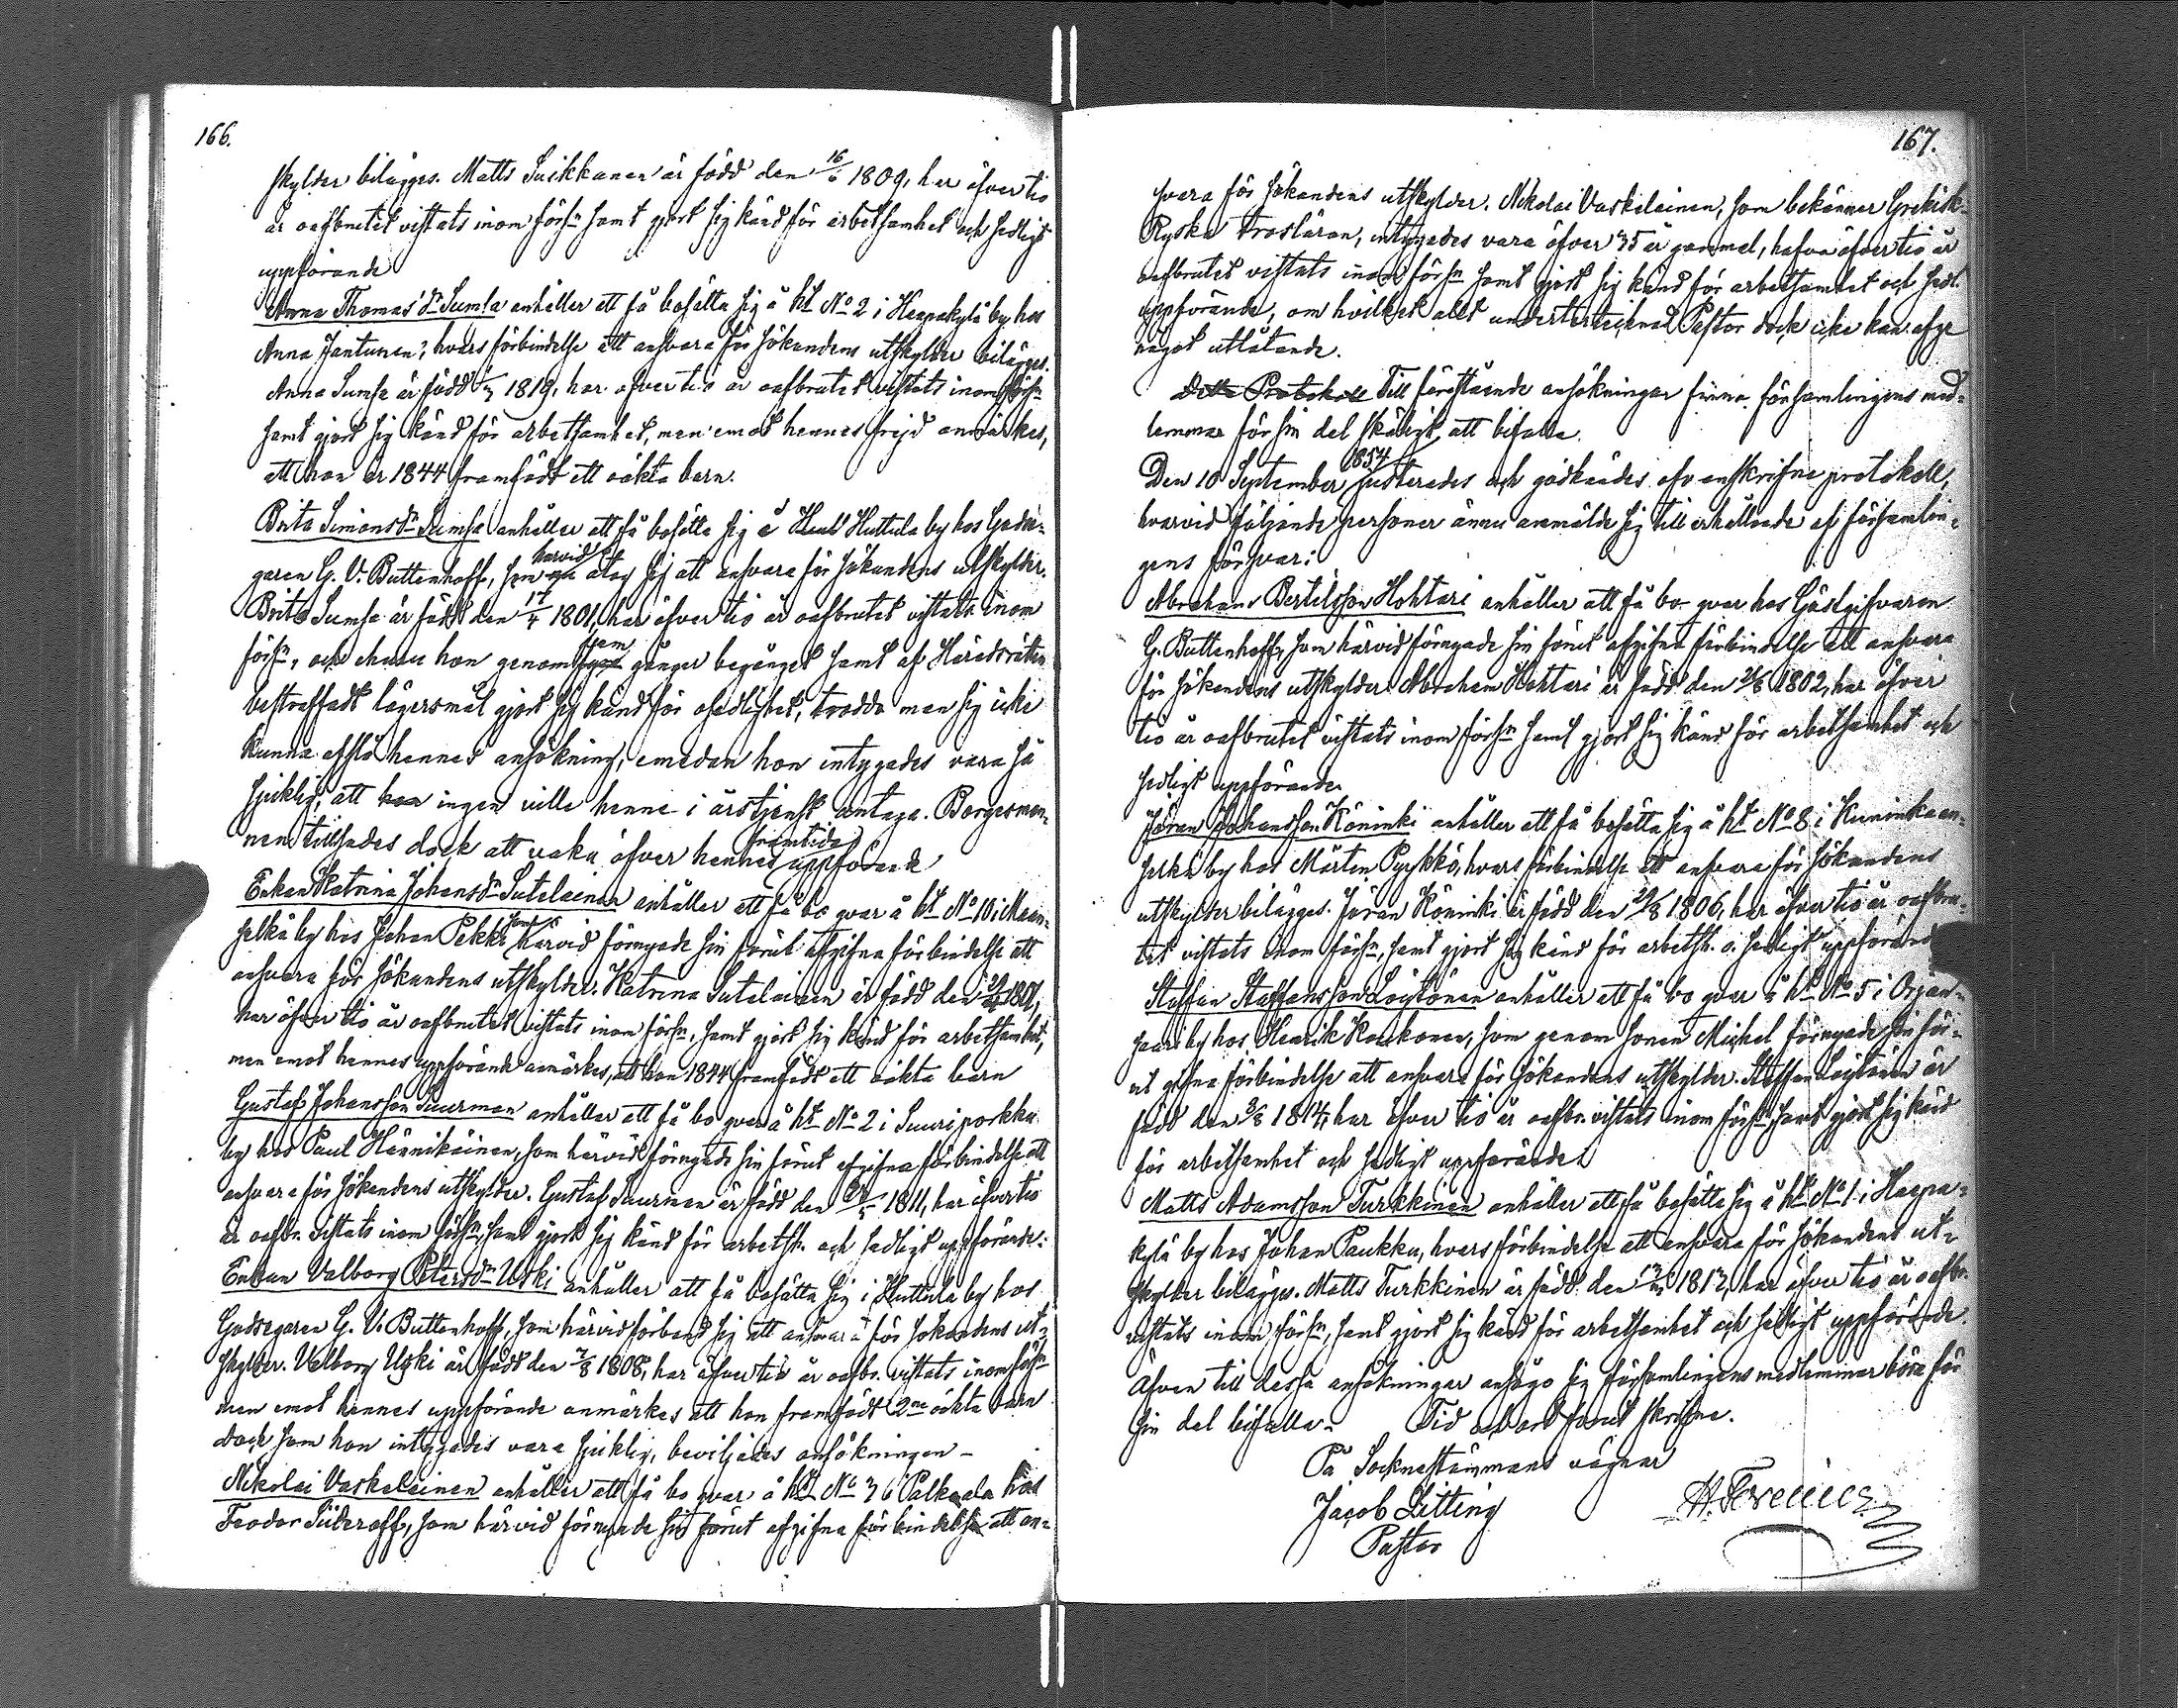 166.
skylder bilägges. Matts Suikkanen är född den 16/6 1809, har öfver tio
år oafbrutet vistats inom förs:n samt gjort sig känd för arbetsamhet och sedligt
uppförande
Anna Thomas d:r Sumsa anhåller att få bosätta sig å ht No 2 i Haapakylä by hos
Anna Jantunen, hvars förbindelse att ansvara för sökandens utskylder bilägges.
Anna Sumsa är född 1819, har öfver tio år oafbrutet vistats inom förs:n
samt gjort sig känd för arbetsamhet, men emot hennes frejd anmärkes,
att hon år 1844 framfödt ett oäkta barn.
Brita Simons d:r Sumsa anhåller att få bosätta sig å Huttula by hos Godsä-
garen G. V. Buttenhoff, som härvid åtog sig att ansvara för sökandens utskylder.
Brita Sumsa är född den 17/4 1801, har öfver tio år oafbrutet vistats inom
förs:n, och ehuru hon genom fem gånger begånget samt af Häradsrätten
bestraffadt lägersmål gjort sig känd för osedlighet, trodde man sig icke
kunna afslå hennes ansökning, emedan hon intygades vara så
sjuklig, att hon ingen ville henne i årstjenst antaga. Borgesman-
nen tillsades dock att vaka öfver hennes framtida uppförande
Enkan Katrina Johans d:r Sutelainen anhåller att få bo qvar å ht No 10 i Maan-
selkä by hos Johan Pekki som härvid förnyade sin förut afgifna förbindelse att
ansvara för sökandens utskylder. Katrina Sutelainen är född den 1801,
har öfver tio år oafbrutet vistats inom förs:n, samt gjort sig känd för arbetsamhet,
men emot hennes uppförande anmärkes, att hon 1844 framfödt ett oäkta barn
Gustaf Johansson Suurman anhåller att få bo qvar å ht No 2 i Suuriporkku
by hos Paul Hännikäinen, som härvid förnyade sin förut afgifna förbindelse att
ansvara för sökandens utskylder. Gustaf Suurman är född den 1811, har öfver tio
år oafbr. vistats inom förs:n, samt gjort sig känd för arbetsh. och sedligt uppförande.
Enkan Valborg Peters d:r Uski anhåller att få bosätta sig i Huttula by hos
Godsegaren G. V. Buttenhoff, som härvid förband sig att ansvara för sökandens ut-
skylder. Valborg Uski är född den 7/8 1808, har öfver tio år oafbr. vistats inom förs:n
men emot hennes uppförande anmärkes att hon framfödt 2ne oäkta barn
dock som hon intygades vara sjuklig, beviljades ansökningen -
Nikolai Vaskelainen anhåller att få bo qvar å ht No 3 i Palkeala hos
Feodor Sideroff, som härvid förnyade sin förut afgifna förbindelse att an-
167.
svara för sökandens utskylder. Nikolai Vaskelainen, som bekänner Grekisk-
Ryska trosläran, intygades vara öfver 35 år gammal, hafva öfver tio år
oafbrutet vistats inom förs:n samt gjort sig känd för arbetsamhet och sedl.
uppförande, om hvilket allt undertecknad Pastor dock icke kan afge
något utlåtande.
Detta Protokoll Till förestående ansökningar finna församlingens med-
lemmar för sin del skäligt att bifalla.
Den 10 September 1854 justerades och godkändes ofvanskrifne protokoll,
hvarvid följande personer ännu anmälde sig till erhållande af församlin-
gens försvar:
Abraham Bertilsson Hohtari anhåller att få bo qvar hos Gästgifvaren
G. Buttenhoff, som härvid förnyade sin förut afgifna förbindelse att ansvara
för sökandens utskylder. Abraham Hohtari är född den 1802, har öfver
tio år oafbrutet vistats inom förs:n samt gjort sig känd för arbetsamhet och
sedligt uppförande.
Jöran Johansson Köninki anhåller att få bosätta sig å ht No 8 i Kuninkaan-
selkä by hos Mårten Pyykkö, hvars förbindelse att ansvara för sökandens
utskylder bilägges. Jöran Köninki är född den 1806, har öfver tio år oafbru-
tet vistats inom förs:n, samt gjort sig känd för arbetsh. o. sedligt uppförande
Staffan Staffansson Löytönen anhåller att få bo qvar å ht No 5 i Orjan-
saari by hos Henrik Koukonen, som genom sonen Michel förnyade sin för-
ut gifna förbindelse att ansvara för sökandens utskylder. Staffan Löytönen är
född den 1814, har öfver tio år oafbr. vistats inom förs:n samt gjort sig känd
för arbetsamhet och sedligt uppförande
Matts Adamsson Turkkinen anhåller att få bosätta sig å ht No 1 i Haapa-
kylä by hos Johan Paukku, hvars förbindelse att ansvara för sökandens ut-
skylder bilägges. Matts Turkkinen är född den 1813, har öfver tio år oafbr.
vistats inom förs:n, samt gjort sig känd för arbetsamhet och sedligt uppförande.
Äfven till dessa ansökningar ansågo sig församlingens medlemmar böra för
sin del bifalla. Tid och ort förut skrifne.
På Socknestämmans vägnar
Jacob Litting
Pastor